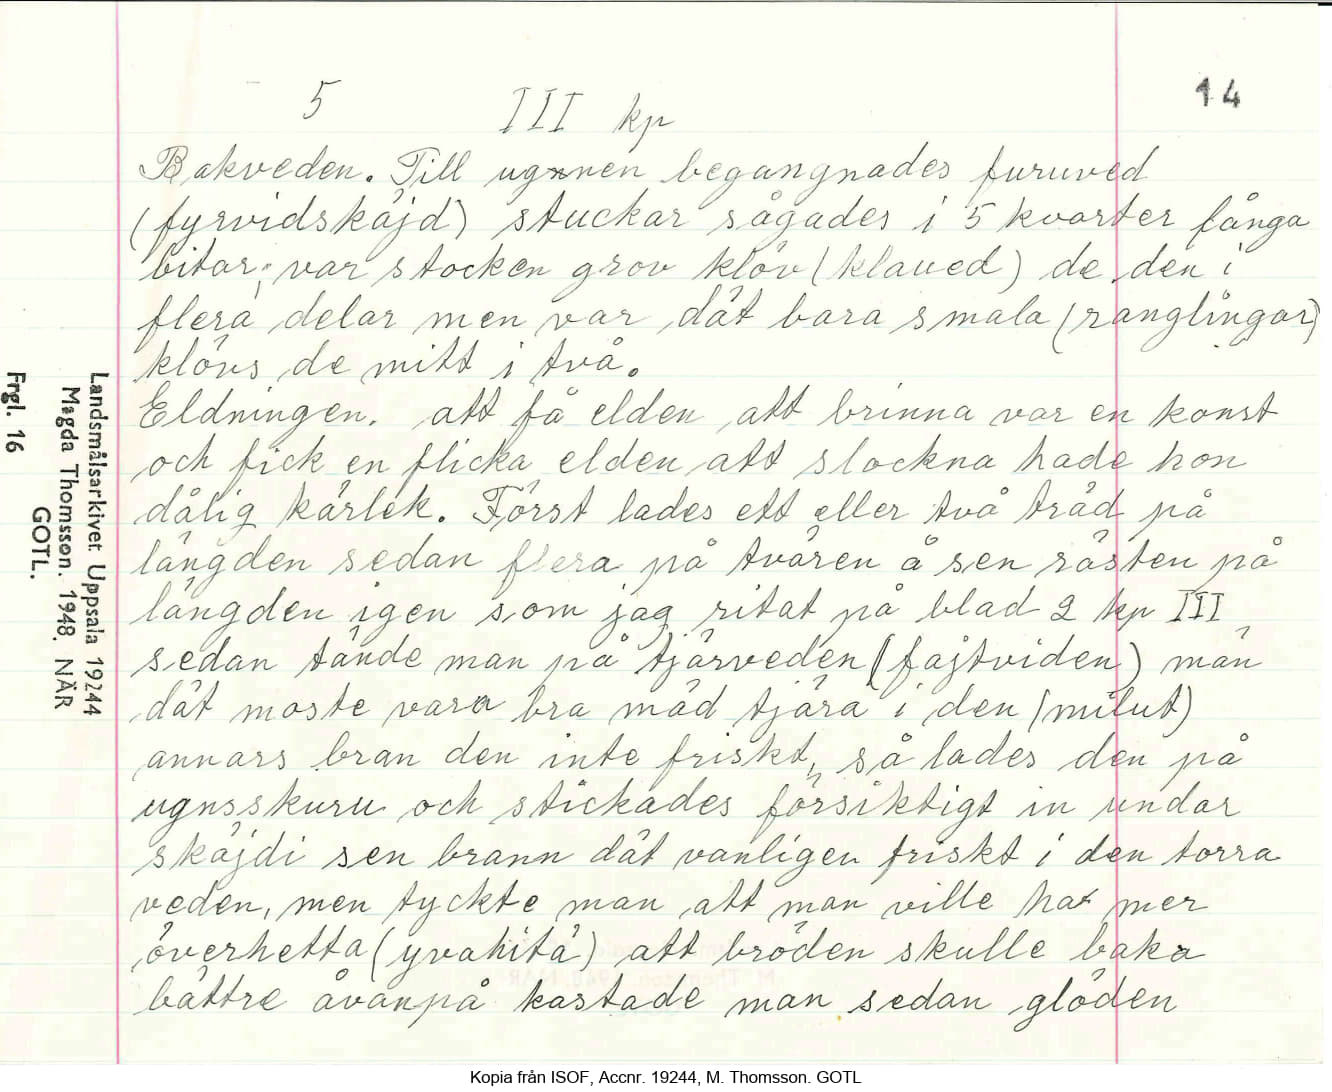 5 III kp 14
Bakveden. Till ugnen begangnades furuved
(fyrvidskäjd) stuckar sågades i 5 kvarter långa
bitar; var stocken grov klöv (klaued) de den i
flera delar men var dät bara smala (ranglingar)
klövs de mitt i två.
Eldningen. att få elden att brinna var en konst
och fick en flicka elden att slockna hade hon
dålig kärlek. Först lades ett eller två träd på
längden sedan flera på tvären å sen rästen på
längden igen som jag ritat på blad 2 kp III
sedan tände man på tjärveden (fajtviden) män
dät moste vara bra mäd tjära i den (milut)
annars bran den inte friskt, så lades den på
ugnsskuru och stickades försiktigt in undar
skäjdi sen brann dät vanligen friskt i den torra
veden, men tyckte man att man ville ha mer
överhetta (yvahitä) att bröden skulle baka
bättre åvanpå kastade man sedan glöden
Landsmålsarkivet Uppsala 19244
Magda Thomsson. 1948. NÄR
GOTL.
Frgl. 16
Kopia från ISOF, Accnr. 19244, M. Thomsson. GOTL